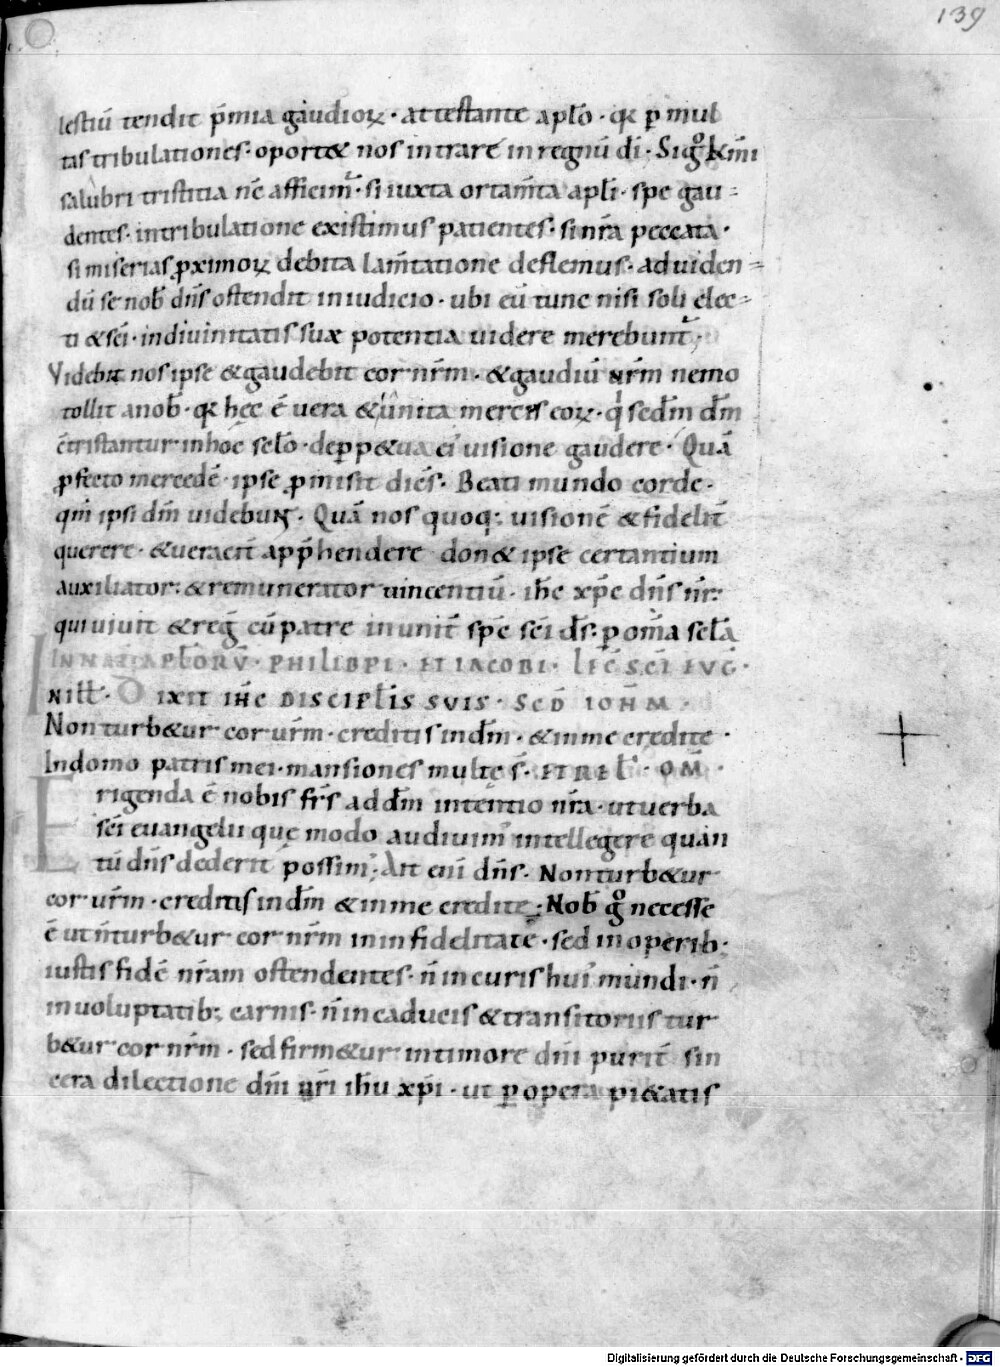 139
lestiū tendit p̄mia gaudioꝝ · attestante apl̄o · qꝛ ꝑ mul
tas tribulationes · oport& nos intrare in regnū dī · Si g̊ km̄i
salubri tristitia n̄c afficim᷒ · si iuxta ortam̄ta apl̄i · spe gau=
dentes · in tribulatione existimus patientes · si nr̄a peccata ·
si miserias ꝓximoꝝ debita lam̄tatione deflemus · ad uiden=
dū se nob̄ dn̄s ostendit in iudicio · ubi eū tunc nisi soli elec=
ti & sc̄i · in diuinitatis suæ potentia uidere merebunt᷒ ·
Videbit nos ipse & gaudebit cor nr̄m · & gaudiū nr̄m nemo
tollit a nob̄ · qꝛ hęc ē uera & unita merces eoꝝ · q̇ sed̄m dm̄
c̄tristantur in hoc scl̄o · de ꝑp&ua ei᷒ uisione gaudere · Quā
ꝓfecto mercedē · ipse ꝓmisit dicēs · Beati mundo corde ·
qm̄ ipsi dm̄ uidebunt · Quā nos quoq; uisionē & fidelit̄
querere · & ueracit̄ app̄hendere don& ipse certantium
auxiliator · & remunerator uincentiū · ih̄c xp̄c dn̄s nr̄ ·
qui uiuit & reg̅ cū patre in unit̄ sp̄c sc̄i ds̄ · ꝑ om̄a scl̄a
IN NAT̄ APL̄ORV̄ · PHILIPPI · ET IACOBI · LEC̄ SC̄I EVG̅ ·
Nill̄t · Dixit ih̄c discipl̄is suis · Sec̄d iohm̄ ·
Non turb&ur cor ur̄m · creditis in dm̄ · & in me credite ·
In domo patris mei · mansiones multę s̄ · ET REL̄ · OM̄ ·
Erigenda ē nobis frs̄ ad dm̄ intentio nr̄a · ut uerba
sc̄i euangelii quę modo audiuim᷒ intellegere quan
tū dn̄s dederit possim᷒ · Ait eni dn̄s · Non turb&ur
cor ur̄m · creditis in dm̄ & in me credite · Nob̄ g̊ necesse
ē ut n̄ turb&ur cor nr̄m in infidelitate · sed in operib;
iustis fidē nr̄am ostendentes · n̄ in curis hui᷒ mundi · n̄
in uoluptatib; carnis · n̄ in caducis & transitoriis tur
b&ur cor nr̄m · sed firm&ur in timore dn̄i purit̄ sin
cera dilectione dn̄i nr̄i ih̄u xp̄i · ut ꝑ opera pi&atis
Digitalisierung gefördert durch die Deutsche Forschungsgemeinschaft - DFG